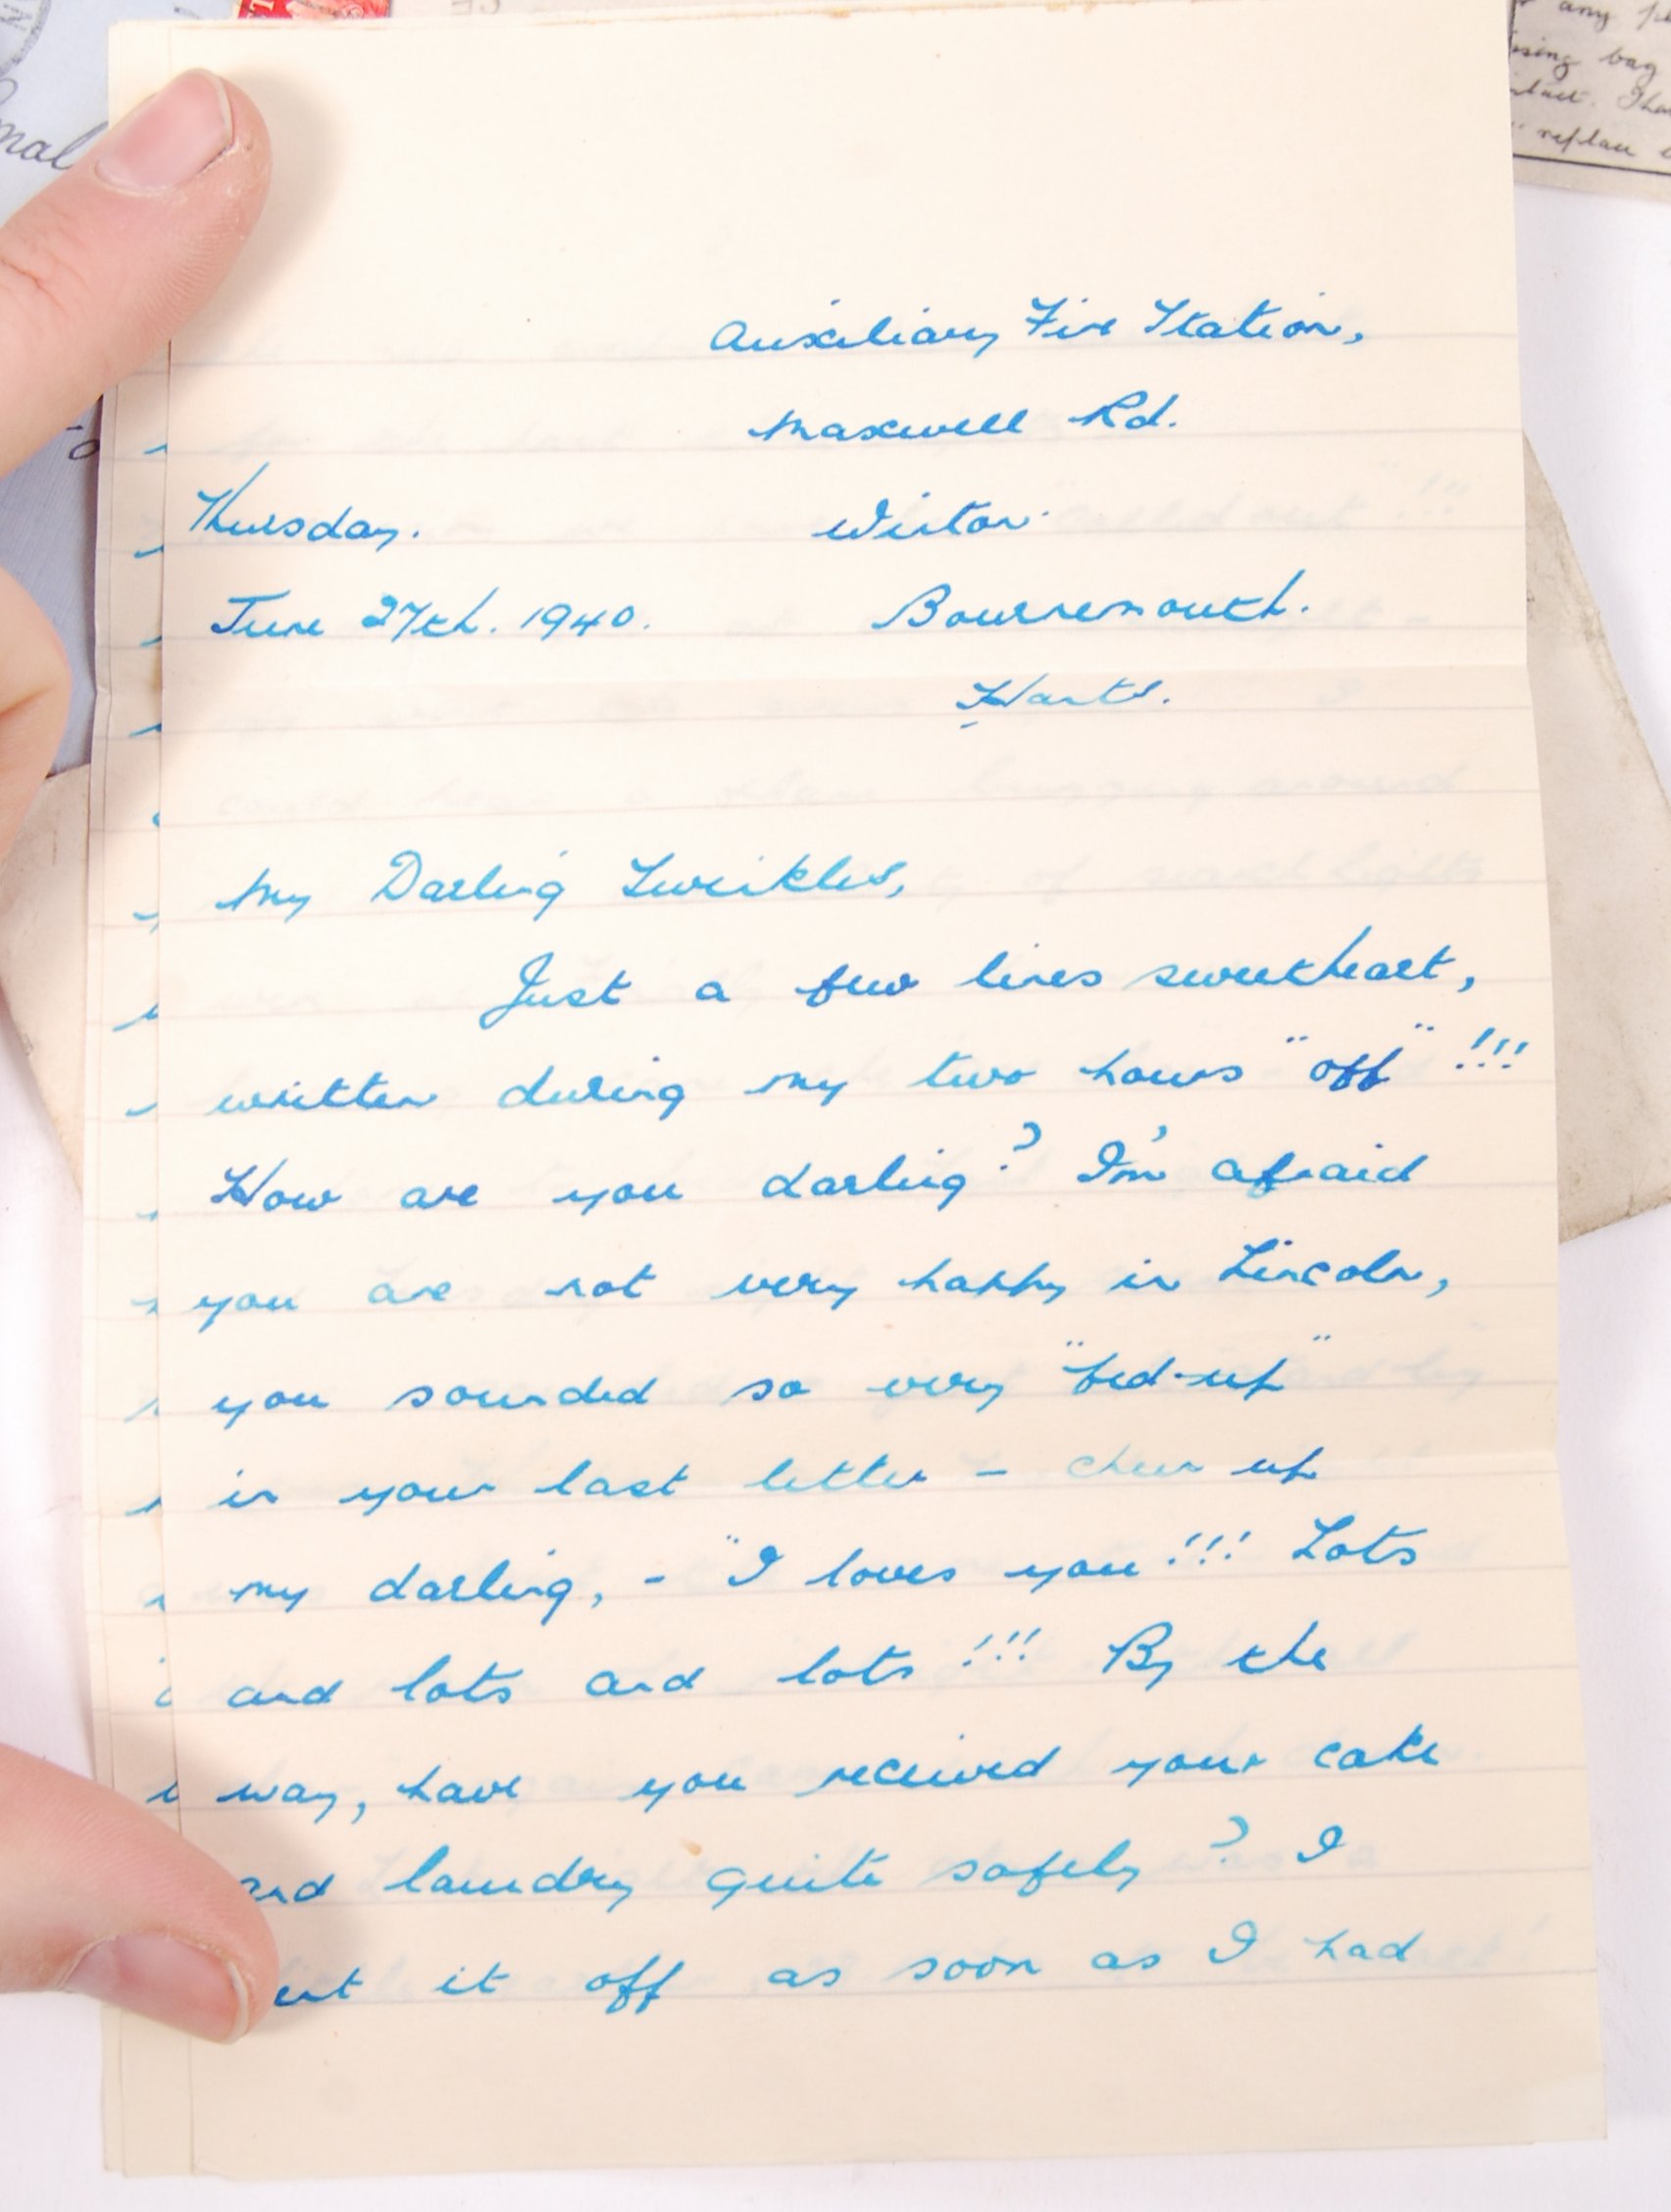 Auxiliary Fire Station,
Maxwell Rd.
Thursday. Winton.
June 27th. 1940. Bournemouth.
Hants.
My Darling Twinkles,
Just a few lines sweetheart,
written during my two hours "off" !!!
How are you darling? I'm afraid
you are not very happy in Lincoln,
you sounded so very "fed-up"
in your last letter - cheer up
my darling, - "I loves you"!!! Lots
and lots and lots !!! By the
way, have you received your cake
and laundry quite safely? I
it off as soon as I had
any
bag